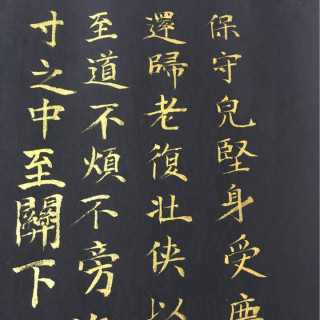 保守兒堅身受
還歸老復壯俠以
至道不煩不旁
寸之中至關下